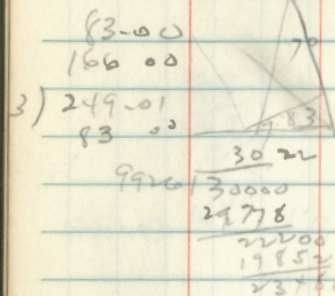 83-00
166 00
3) 249-01
83 00
70
9.83
30 22
9926) 30000
29778
22200
19852